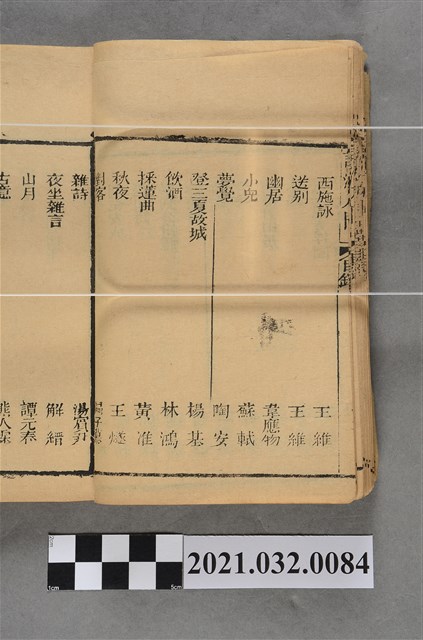 西施詠 王維
送別 王維
幽居 韋應物
小兒 蘇軾
夢覺 陶安
登三夏故城 楊基
飲酒 林鴻
採蓮曲 黃准
秋夜 王燧
雜詩 湯賓尹
夜坐雜言 解縉
山月 譚元春
古意
2cm
1cm
5cm
2021.032.0084